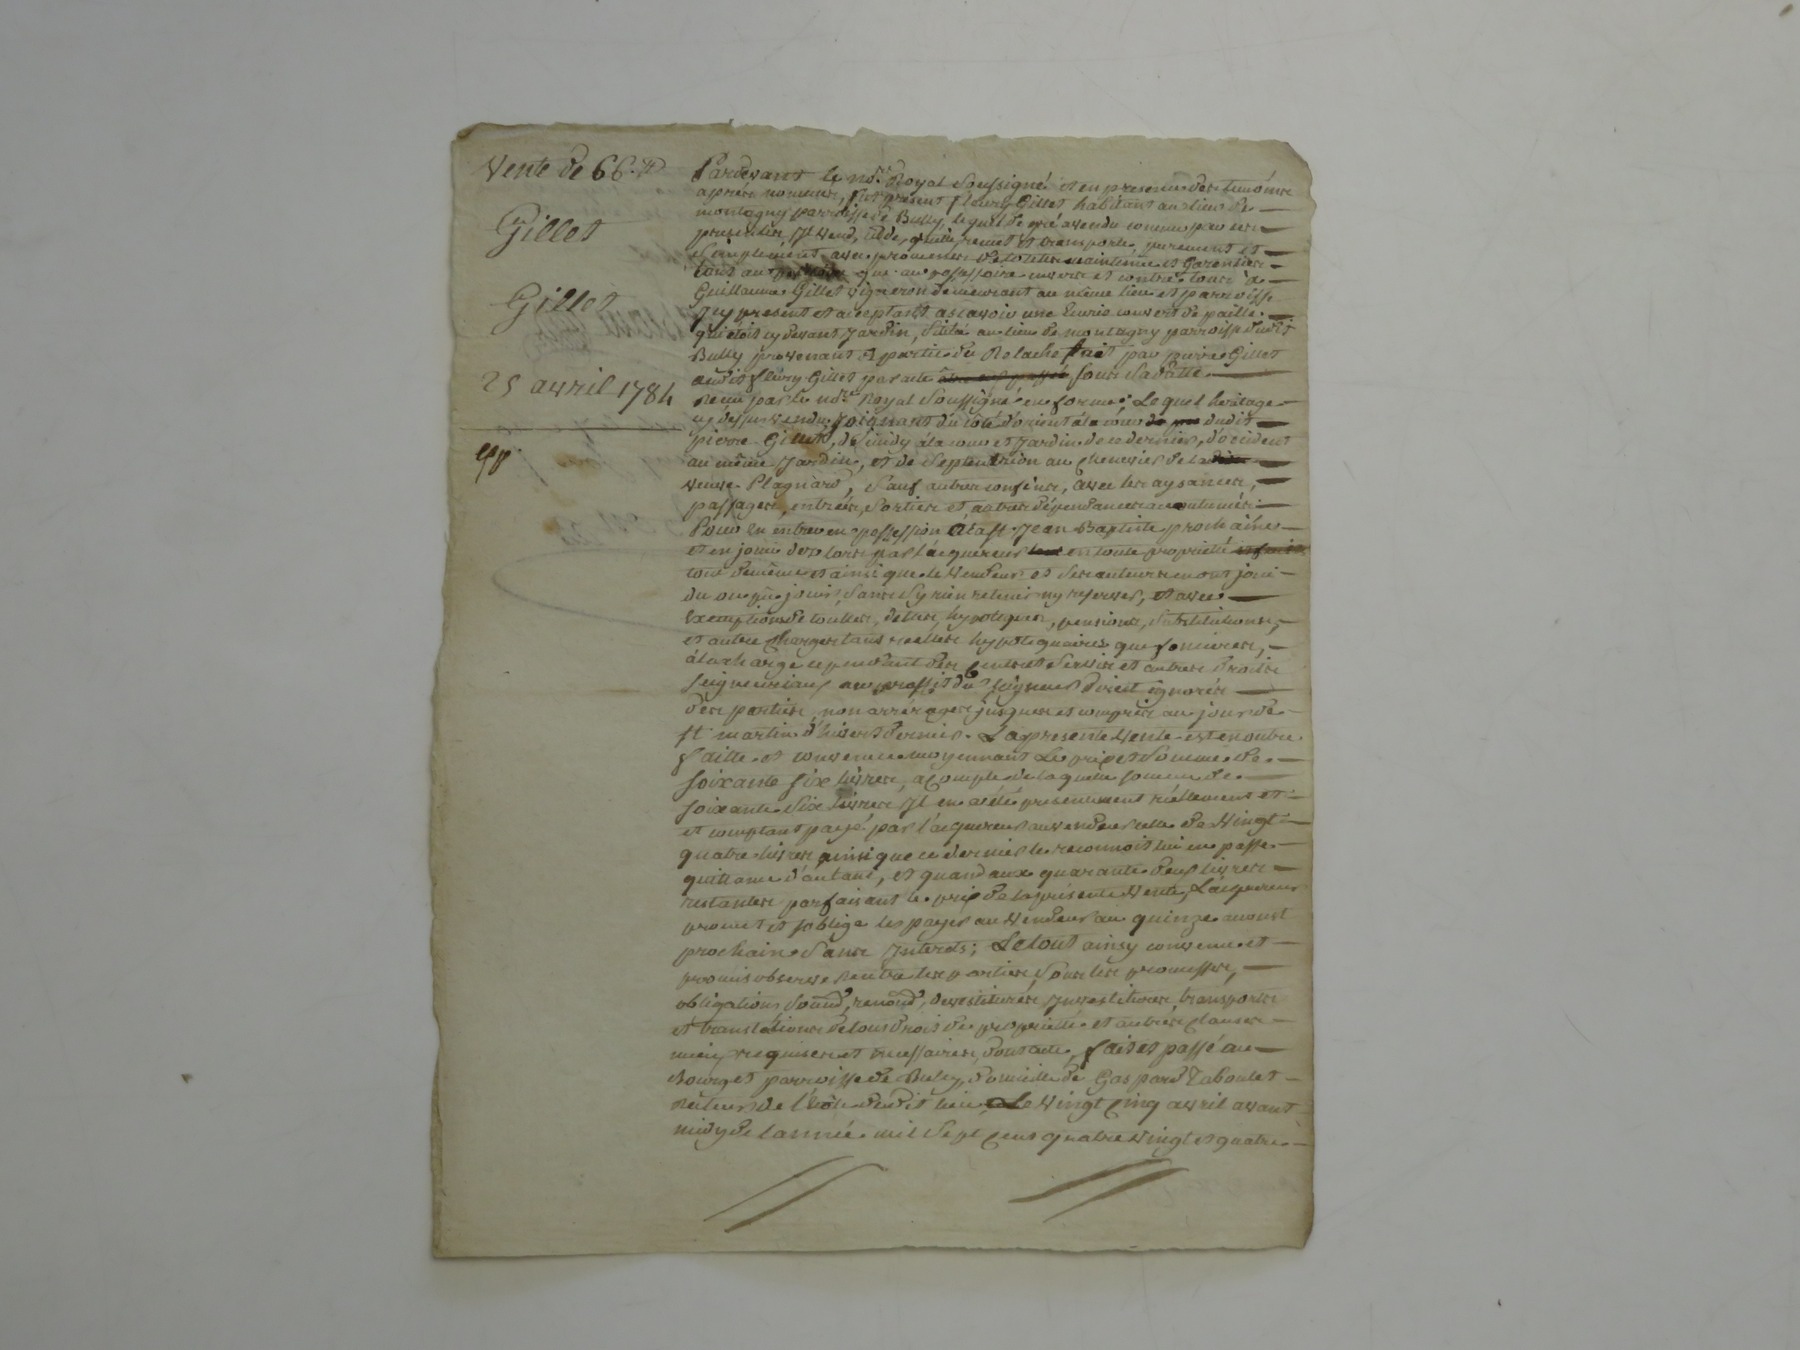 Vente de 66.#
Gillet
Gillet
25 avril 1784
Pardevant le no.re Royal Soussigné et en presence des temóins
aprés nommés, fut présent fleury Gillet habitant au lieu de
montagny parroisse de Bully, lequel de gré a vendu comme par ces
presentes Il vend, cède, quitte, remet et transporte, purement et
Simplement avec promesses de totale maintenüe et Garenties
tant au que au possessoire envers et contre tous à
Guillaume Gillet vigneron demeurant au même lieu et parroisse
Icy present et acceptant ascavoir une Ecurie couvert de paille
qui étoit cy devant Jardin, Situé au lieu de montagny parroisse dudit
Bully provenant de partie du Relache fait par pierre Gillet
audit fleury Gillet par acte sous Sa datte
Reçu par le no.re Royal Soussigné en forme; Lequel héritage
cy dessus vendu Joignant du côté d'orient à la cour dudit
pierre Gillet, de midy à la cour et Jardin de ce dernier, d'occident
au même Jardin, et de Septentrion au chenevier de la
veuve Plagnard, Sauf autres confins, avec les aysances,
passages, entrées, Sorties et autres dépendances accoutumées
Pour en entrer en possession à la St. Jean Baptiste prochaine
et en jouir des lors par l'acquereur en toute proprieté
tout de même et ainsi que le Vendeur et Ses auteurs en ont joui
du ou pû jouir, Sans Sy rien retenir ny reserver, et avec
Exemption de touttes, dettes, hypoteques, pensions, Substitutions,
et autre charges tant réelles hypotequaires que foncieres,
à la charge cependant des Cens et Servis et autres Droits
Seigneuriaux au proffit du Seigneur direct ignorés
des parties, non arréragés jusques et compris au jour de
St. martin d'hiver dernier. La presente Vente est en outre
faitte et convenue moyennant Le prix et Somme de
soixante six livres, acompte de laquelle somme de
soixante Six livres Il en a été presentement réellement et
et comptant payé par l'acquereur au vendeur celle de Vingt
quatre livres ainsi que ce dernier le reconnoit lui en passe
quittance d'autant, et quand aux quarante deux livres
restantes parfaisant le prix de la présente Vente, L'acquereur
promet et s'oblige les payer au Vendeur au quinze aoust
prochain Sans Interets; Le tout ainsy convenu et
promis observer entre les parties, Sous les promesses,
obligations, Soumd, renond, devestitures, Investitures, transports
et translations de tous droits de proprieté et autres clauses
mieux requises et necessaires, dont acte, fait et passé au
Bourg et parroisse de Bully, domicile de Gaspard Taboulet
Recteur de l'école dudit lieu Le Vingt Cinq avril avant
midy de l'année mil Sept Cens quatre Vingt et quatre